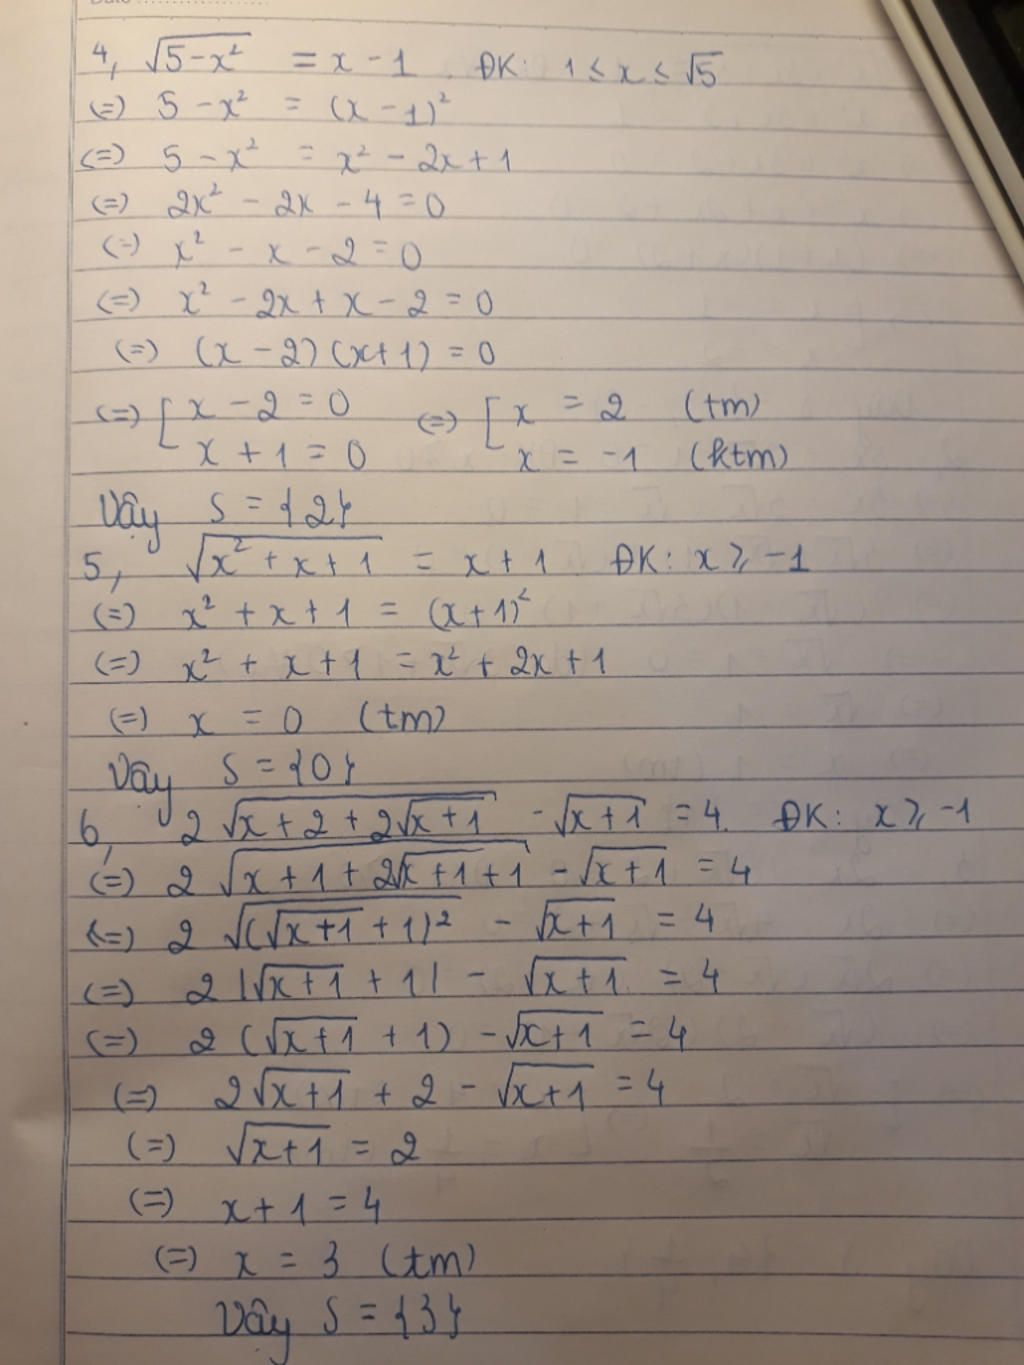 4, √(5-x²) = x - 1 . ĐK: 1 ≤ x ≤ √5
(=) 5 - x² = (x - 1)²
(=) 5 - x² = x² - 2x + 1
(=) 2x² - 2x - 4 = 0
(=) x² - x - 2 = 0
(=) x² - 2x + x - 2 = 0
(=) (x - 2)(x+1) = 0
(=) [ x - 2 = 0 (=) [ x = 2 (tm)
x + 1 = 0 x = -1 (ktm)
Vậy S = {2}
5, √(x² + x + 1) = x + 1 ĐK: x ≥ -1
(=) x² + x + 1 = (x+1)²
(=) x² + x + 1 = x² + 2x + 1
(=) x = 0 (tm)
Vậy S = {0}
6, 2√(x + 2 + 2√(x+1)) - √(x+1) = 4. ĐK: x ≥ -1
(=) 2√(x + 1 + 2√(x+1) + 1) - √(x+1) = 4
(=) 2√((√(x+1) + 1)²) - √(x+1) = 4
(=) 2|√(x+1) + 1| - √(x+1) = 4
(=) 2(√(x+1) + 1) - √(x+1) = 4
(=) 2√(x+1) + 2 - √(x+1) = 4
(=) √(x+1) = 2
(=) x + 1 = 4
(=) x = 3 (tm)
Vậy S = {3}